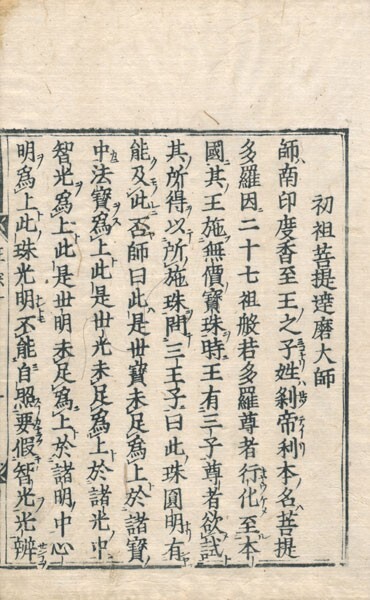 初祖菩提達磨大師
師南印度香至王之子姓刹帝利本名菩提
多羅因二十七祖般若多羅尊者行化至本
國其王施無價寶珠時王有三子尊者欲試
其所得以所施珠問三王子曰此珠圓明有
能及此否師曰此是世寶未足爲上於諸寶
中法寶爲上此是世光未足爲上於諸光中
智光爲上此是世明未足爲上於諸明中心
明爲上此珠光明不能自照要假智光光辨